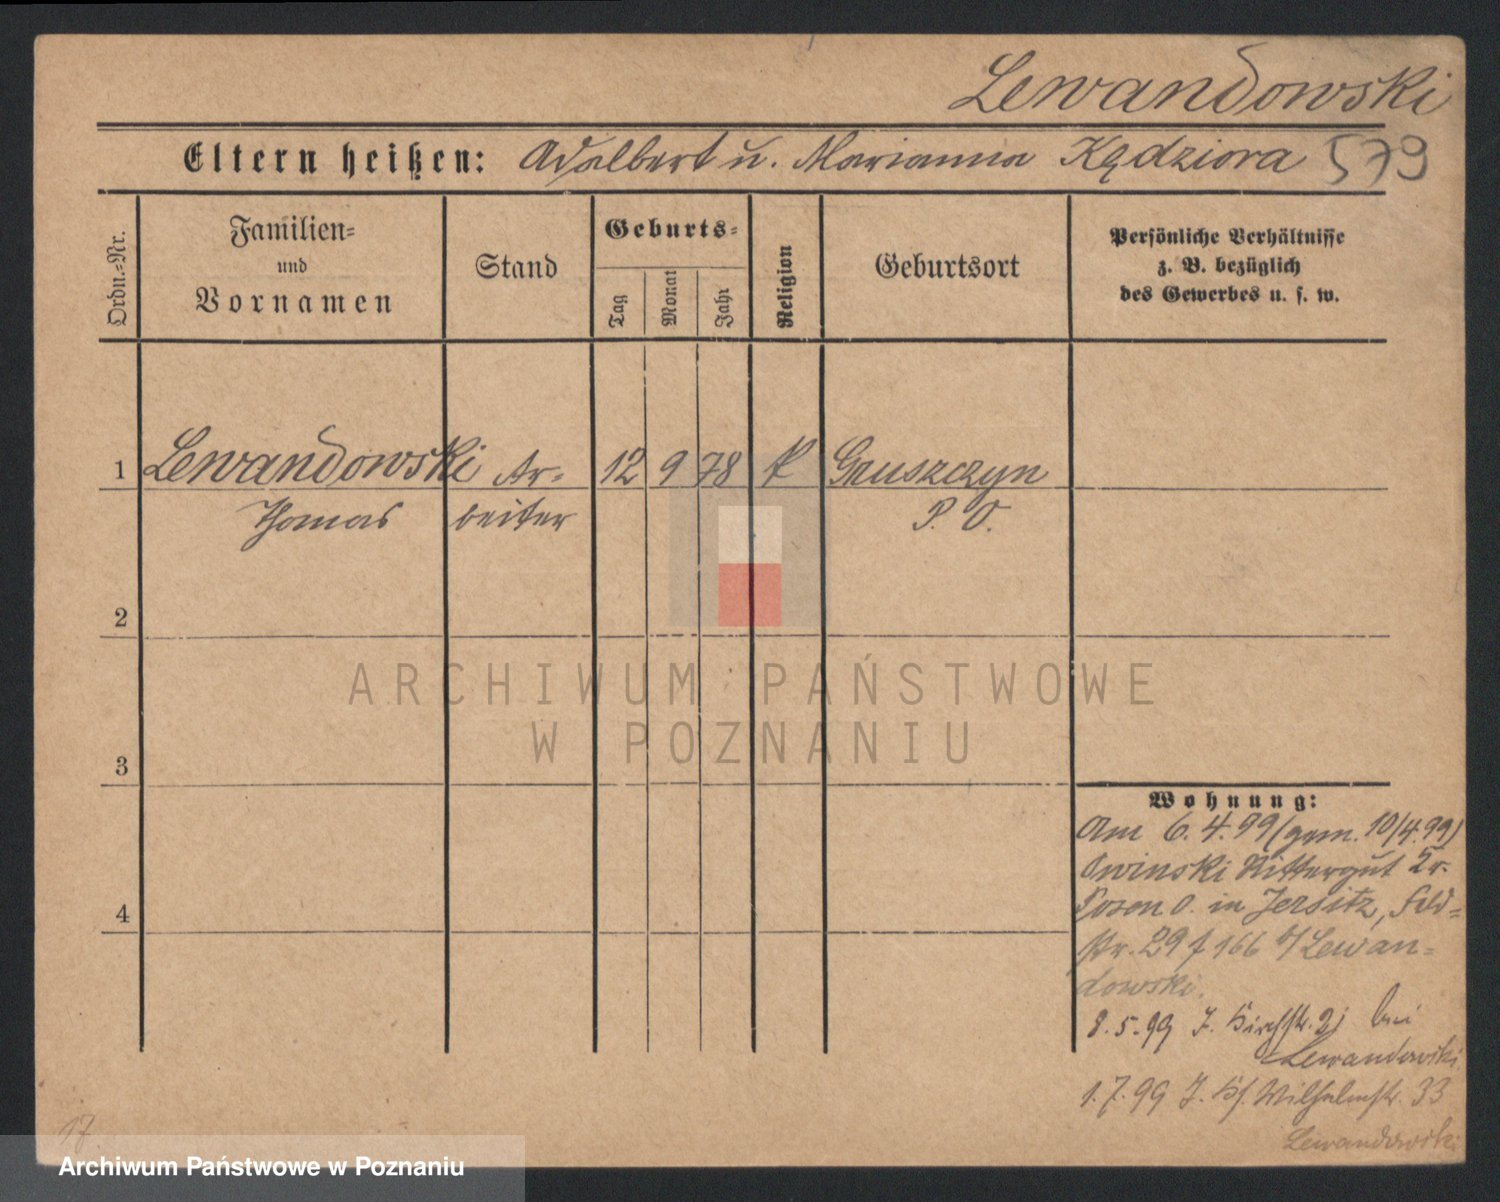 Lewandowski
Eltern heißen: Adalbert u. Marianna Kędziora 579
Ordn.=Nr.
Familien=
und
Vornamen
Stand
Geburts=
Tag
Monat
Jahr
Religion
Geburtsort
Persönliche Verhältnisse
z. B. bezüglich
des Gewerbes u. s. w.
1 Lewandowski Ar= 12 9 78 k Gruszczyn
Thomas beiter P. O.
2
3
4
Wohnung:
Am 6.4.99 (gem. 10/4.99)
Owinski Rittergut Kr.
Posen O. in Jersitz, Feld=
str. 29 166 b/ Lewan=
dowski.
8.5.99 J. Kirchstr. bei
Lewandowski
1.7.99 J. Wilhelmstr. 33
Lewandowski
17
ARCHIWUM PAŃSTWOWE
W POZNANIU
Archiwum Państwowe w Poznaniu